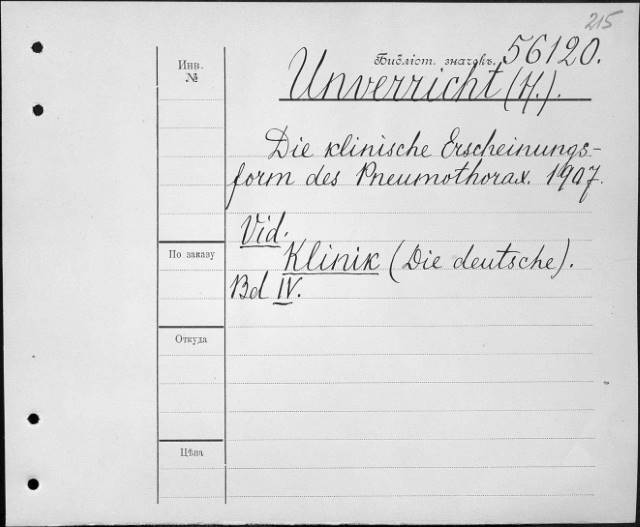 215
Библіот. значекъ. 56120.
Инв.
№
Unverricht (H.).
Die klinische Erscheinungs-
form des Pneumothorax. 1907.
Vid.
Klinik (Die deutsche).
По заказу
Bd IV.
Откуда
Цѣна